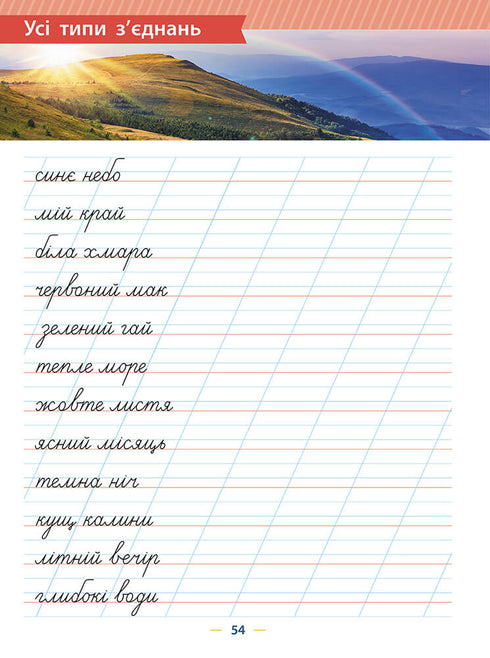 Усі типи з’єднань
синє небо
мій край
біла хмара
червоний мак
зелений гай
тепле море
жовте листя
ясний місяць
темна ніч
кущ калини
літній вечір
глибокі води
54